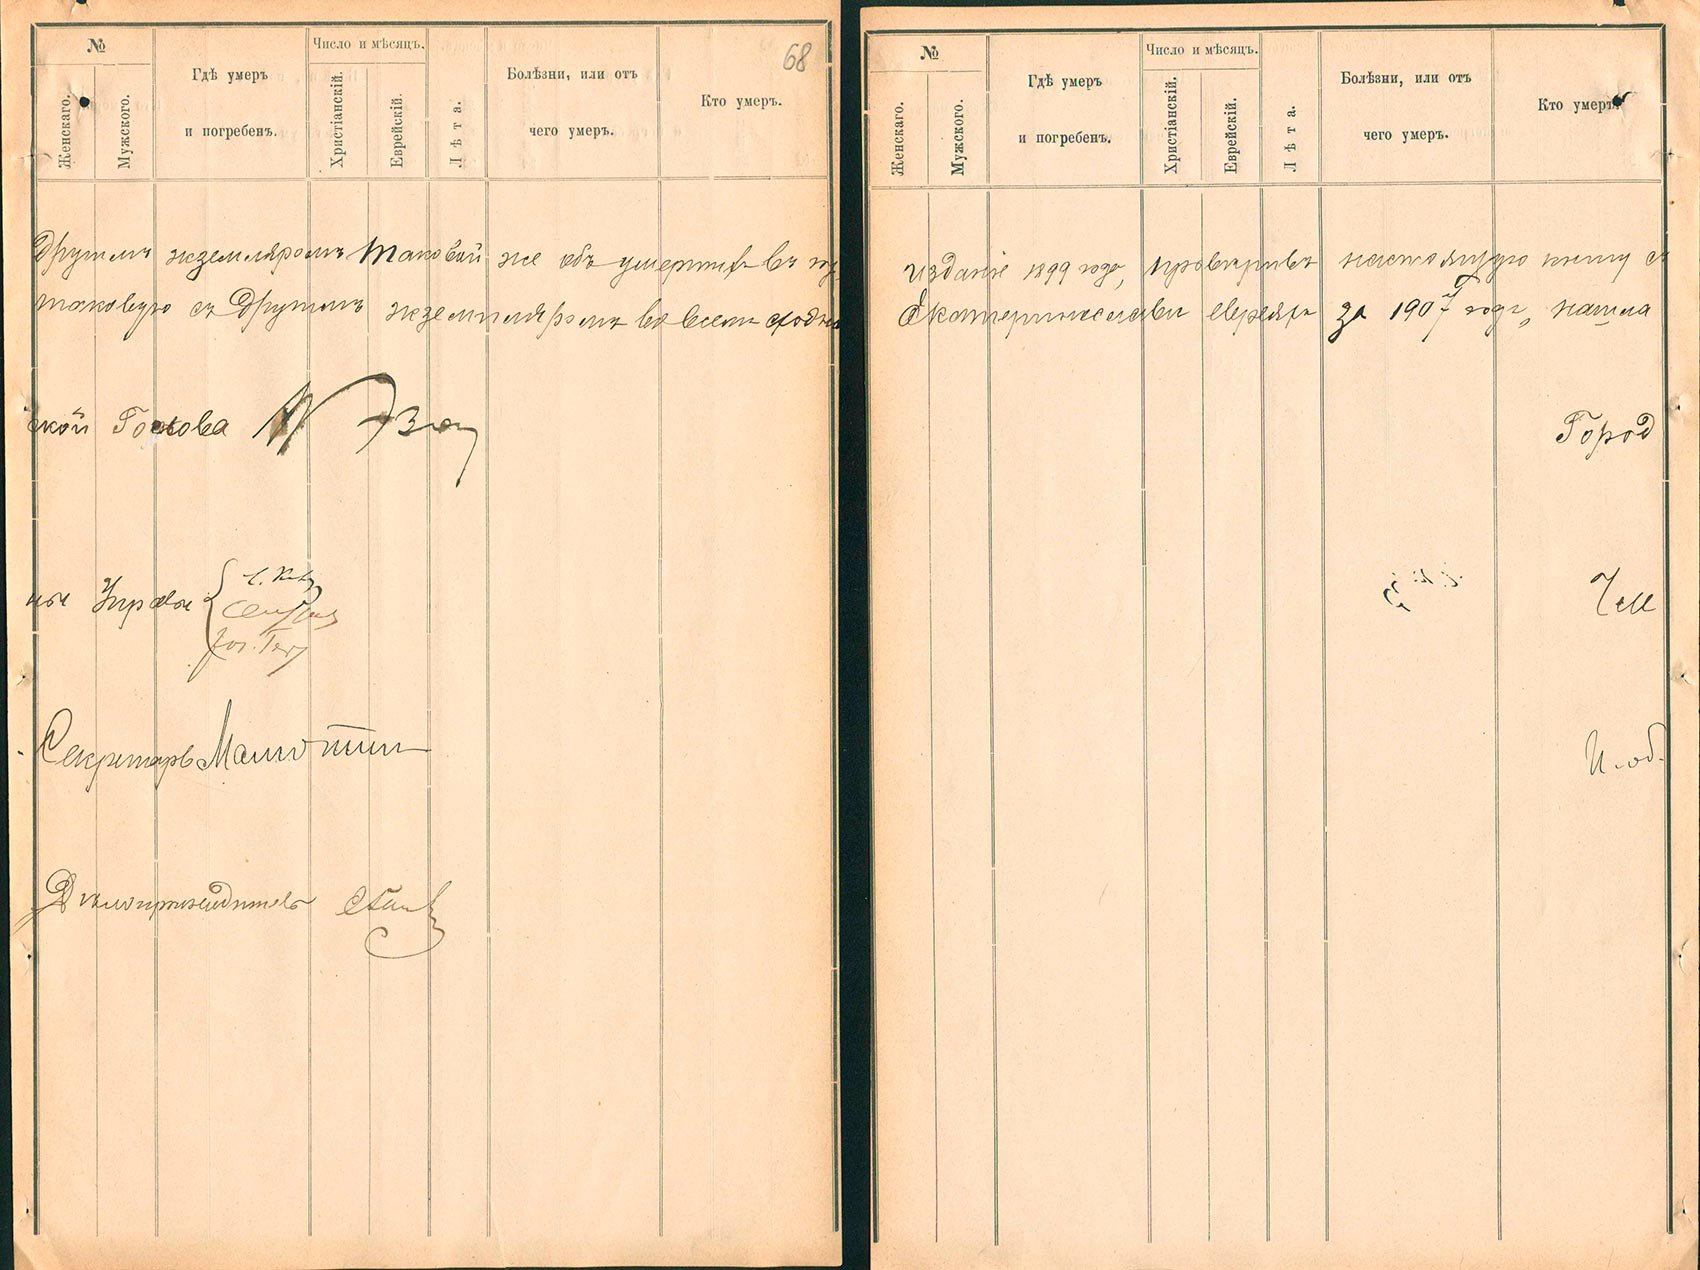 №
Женскаго.
Мужского.
Гдѣ умеръ
и погребенъ.
Число и мѣсяцъ.
Христіанскій.
Еврейскій.
Лѣта.
Болѣзни, или отъ
чего умеръ.
68
Кто умеръ.
другимъ экземпляромъ таковой же объ умершихъ въ
таковую съ другимъ экземпляромъ во всемъ сходн
ской Голова
ны Управы
Секретарь
Дѣлопроизводитель
№
Женскаго.
Мужского.
Гдѣ умеръ
и погребенъ.
Число и мѣсяцъ.
Христіанскій.
Еврейскій.
Лѣта.
Болѣзни, или отъ
чего умеръ.
Кто умеръ.
изданіе 1899 года, провѣривъ настоящую книгу съ
Екатеринославѣ евреяхъ за 1907 годъ, нашла
Город
Чле
И. об.